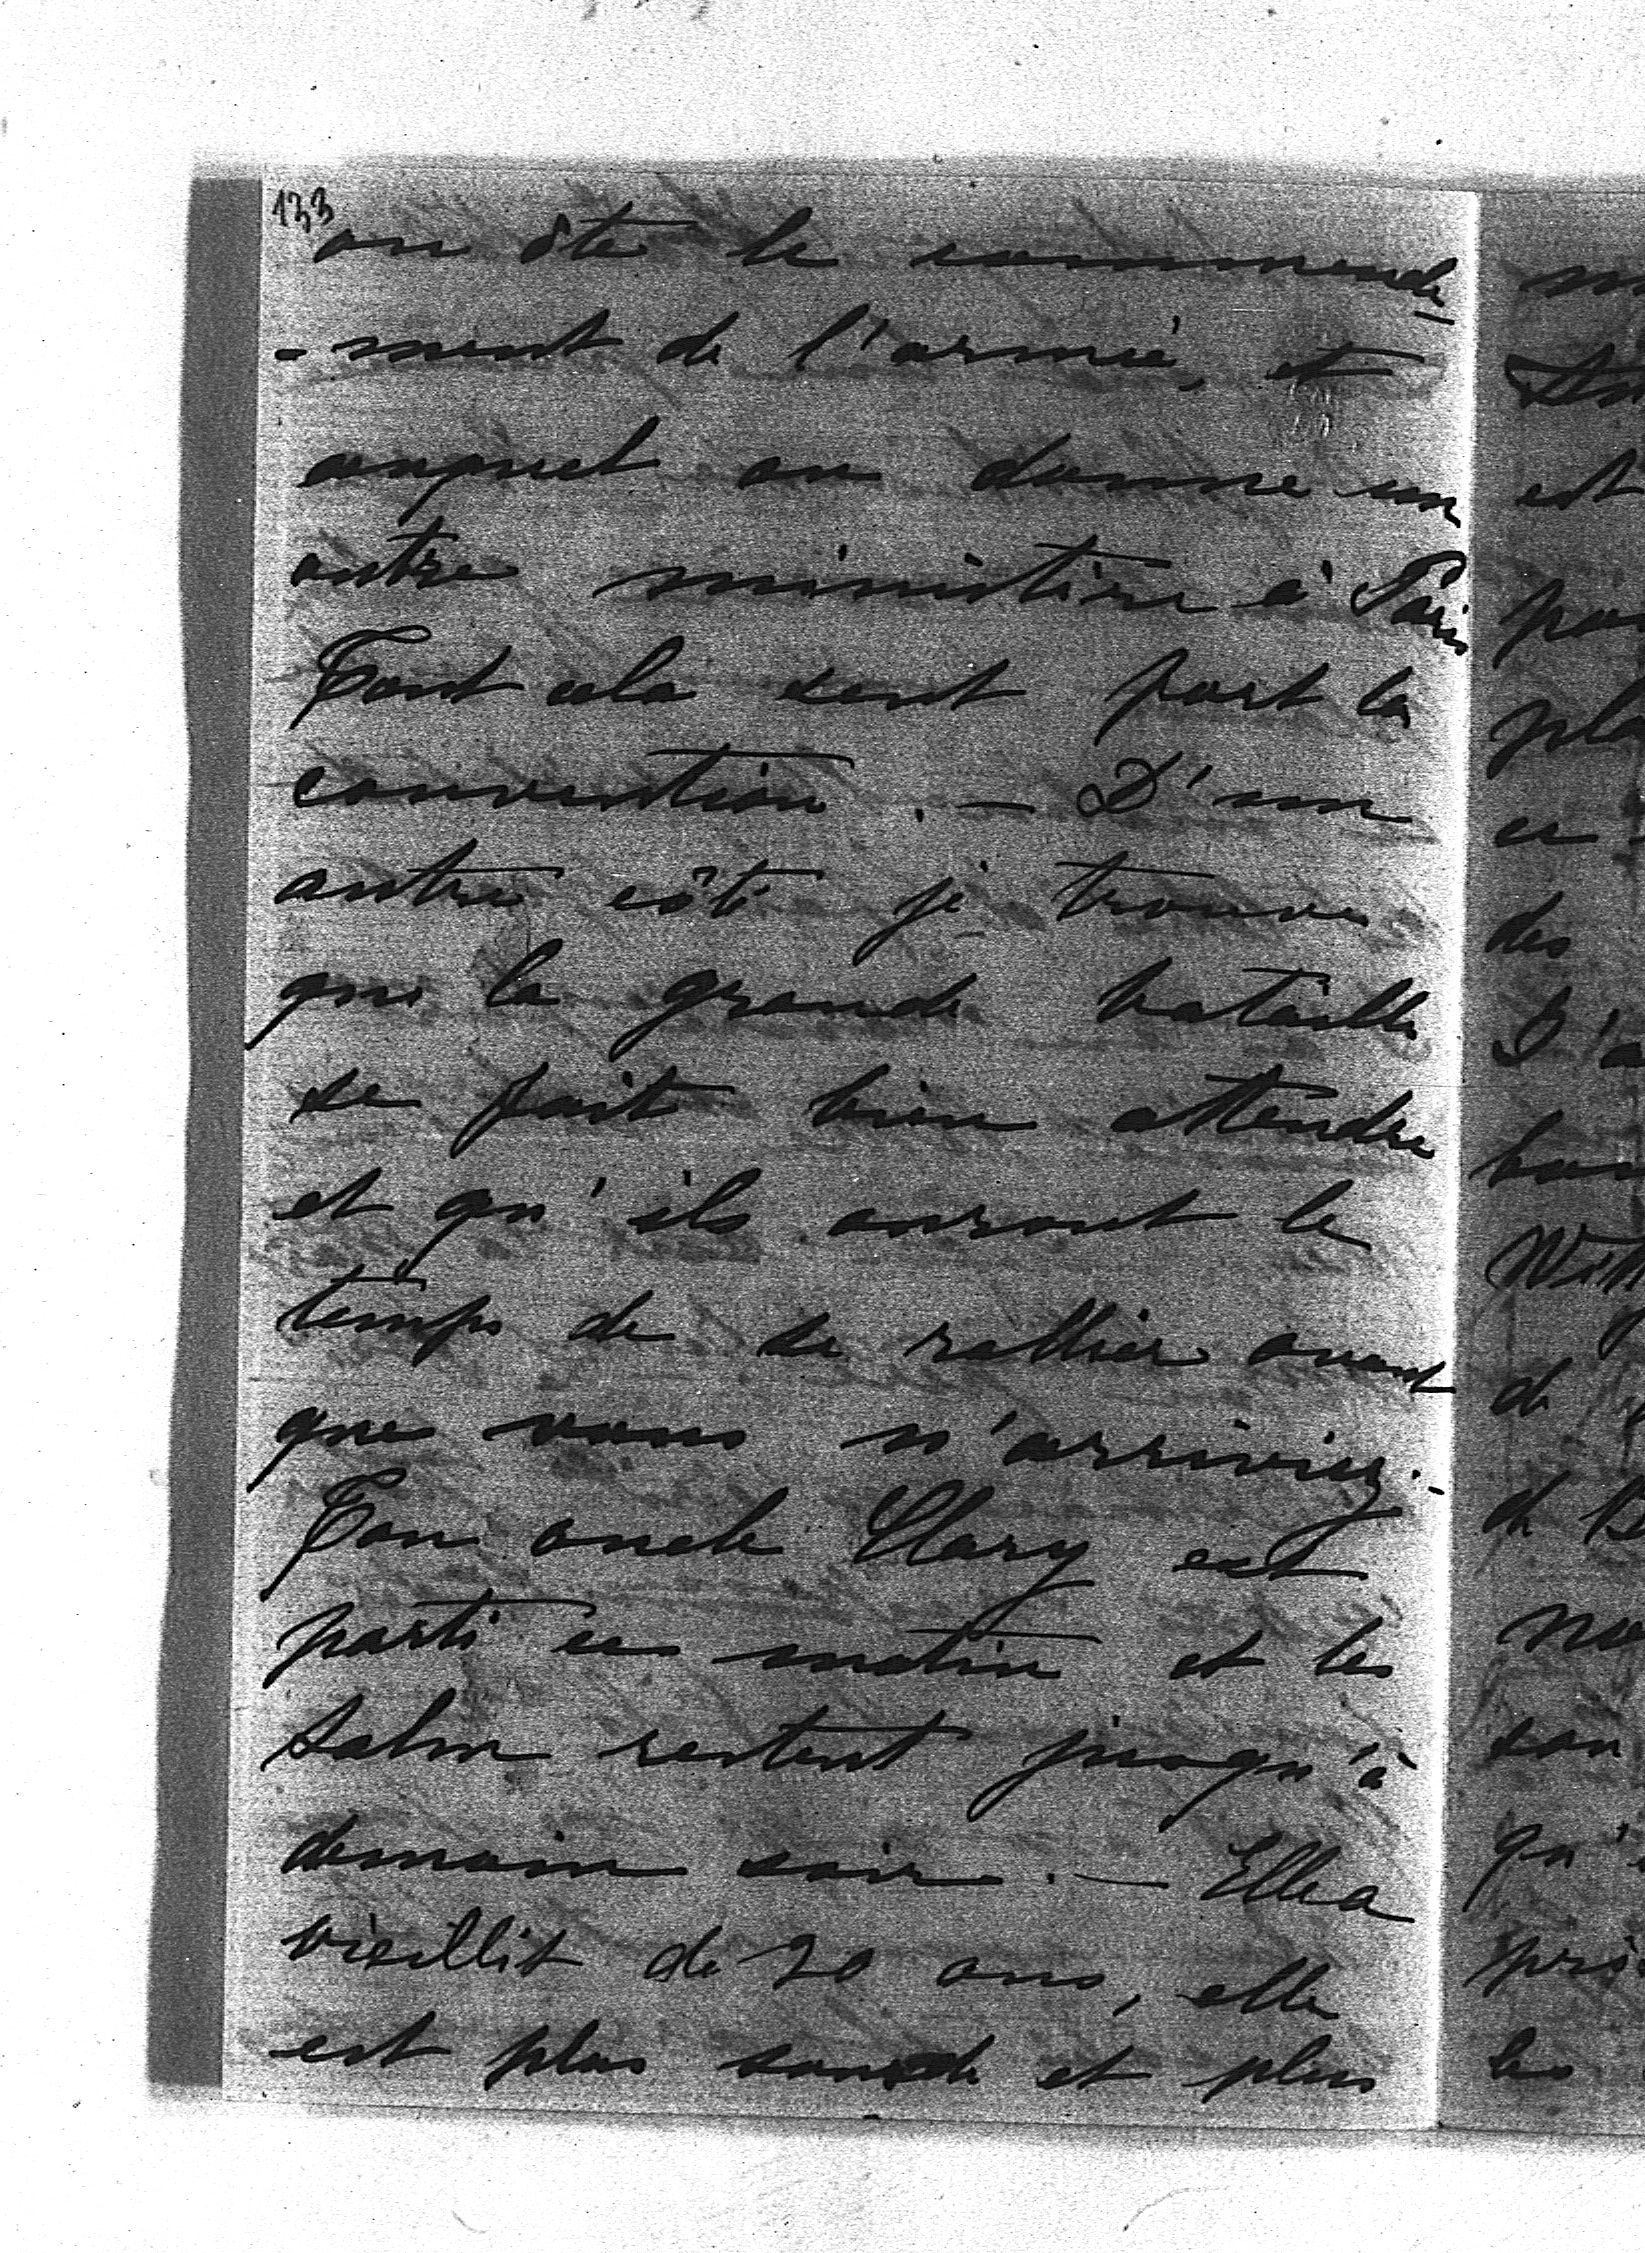 133
on ôte le commende-
-ment de l'armée, et
auquel on donne un
autre ministère à Paris
Tout cela sent fort la
convention. – D'un
autre côté je trouve
que la grande bataille
se fait bien attendre
et qu'ils auront le
temps de se rallier avant
que vous n'arriviez. –
Ton oncle Clary est
parti ce matin et les
Salm restent jusqu'à
demain soir. – Elle a
vieillit de 20 ans, elle
est plus sourde et plus